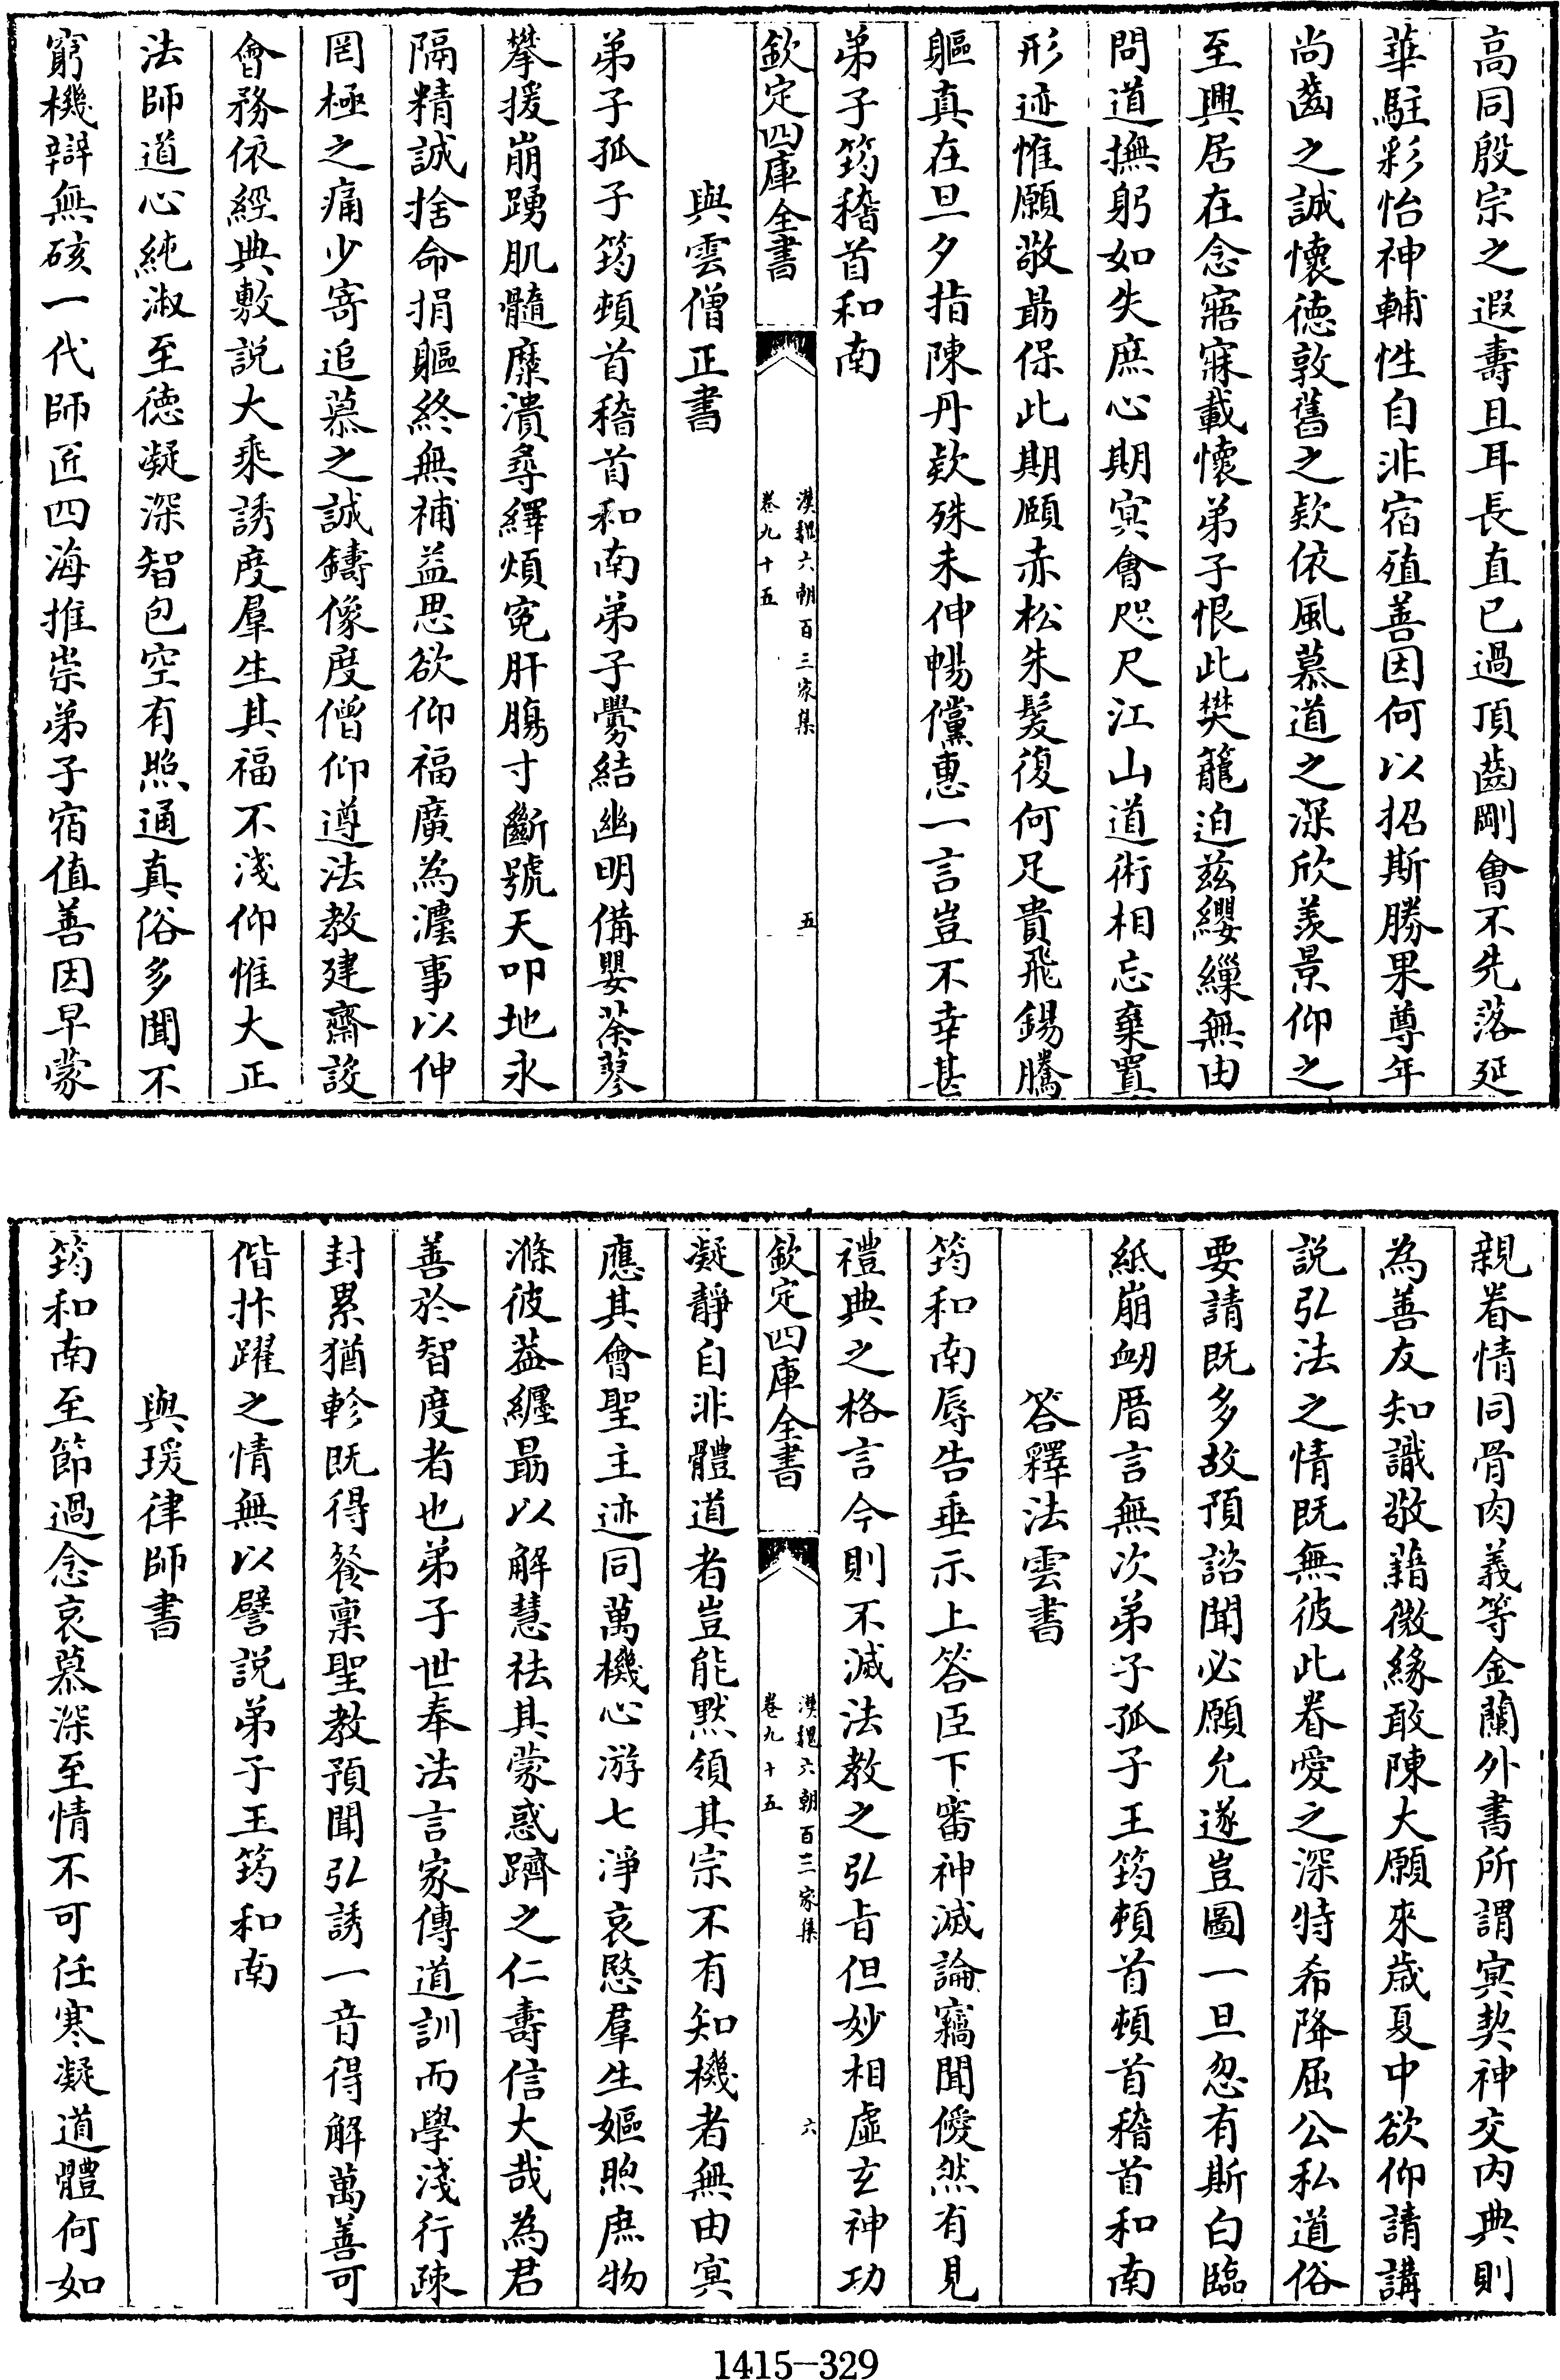 高同殷宗之遐壽且耳長直已過頂齒剛會不先落延
華駐彩怡神輔性自非宿殖善因何以招斯勝果尊年
尚齒之誠懷徳敦舊之欵依風慕道之深欣羡景仰之
至興居在念寤寐載懷弟子恨此樊籠迫兹纓纆無由
問道撫躬如失庶心期冥會咫尺江山道術相忘棄置
形迹惟願敬勗保此期頤赤松朱髮復何足貴飛錫騰
軀真在旦夕指陳丹欵殊未伸暢儻惠一言豈不幸甚
弟子筠稽首和南
欽定四庫全書
漢魏六朝百三家集
卷九十五
五
與雲僧正書
弟子孤子筠頓首稽首和南弟子釁結幽明備嬰荼蓼
攀援崩踴肌髓糜潰尋繹煩寃肝膓寸斷號天叩地永
隔精誠捨命捐軀終無補益思欲仰福廣為灋事以伸
罔極之痛少寄追慕之誠鑄像度僧仰遵法教建齋設
會務依經典敷説大乘誘度羣生其福不淺仰惟大正
法師道心純淑至徳凝深智包空有照通真俗多聞不
窮機辯無硋一代師匠四海推崇弟子宿值善因早蒙
親眷情同骨肉義等金蘭外書所謂冥契神交内典則
為善友知識敬藉微緣敢陳大願來歲夏中欲仰請講
説弘法之情既無彼此眷愛之深特希降屈公私道俗
要請既多故預諮聞必願允遂豈圖一旦忽有斯白臨
紙崩衂厝言無次弟子孤子王筠頓首頓首稽首和南
答釋法雲書
筠和南辱告垂示上答臣下審神滅論竊聞僾然有見
禮典之格言今則不滅法教之弘旨但妙相虛玄神功
欽定四庫全書
漢魏六朝百三家集
卷九十五
六
凝靜自非體道者豈能黙領其宗不有知機者無由冥
應其會聖主迹同萬機心游七淨哀愍羣生嫗煦庶物
滌彼葢纒勗以解慧祛其蒙惑躋之仁壽信大哉為君
善於智度者也弟子世奉法言家傳道訓而學淺行疎
封累猶軫既得餐稟聖教預聞弘誘一音得解萬善可
偕抃躍之情無以譬説弟子王筠和南
與瑗律師書
筠和南至節過念哀慕深至情不可任寒凝道體何如
1415—329